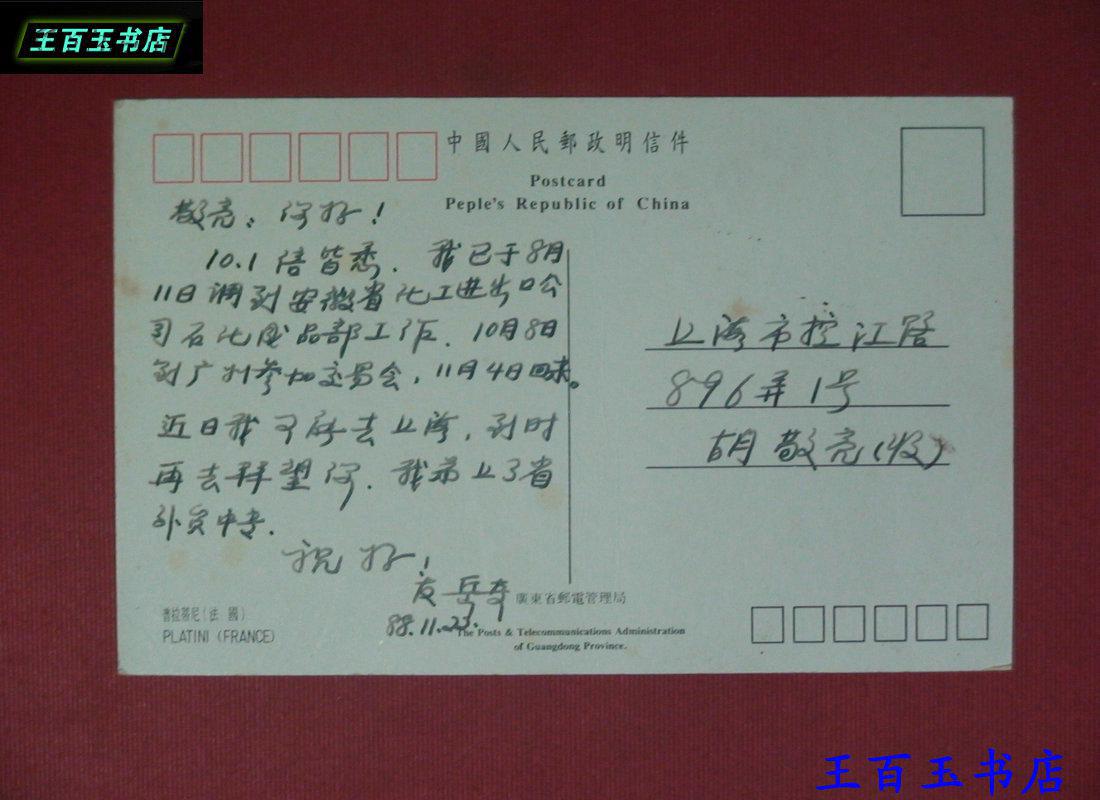 王百玉书店
中國人民郵政明信件
Postcard
Peple's Republic of China
敬亮：你好！
10.1信皆悉．我已于8月
11日调到安徽省化工进出口公
司石化成品部工作．10月8日
到广州参加交易会，11月4日回来。
近日我可能去上海，到时
再去拜望你．我弟上了省
外贸中专．
祝好！
友
88.11.22.
普拉蒂尼（法國）
PLATINI (FRANCE)
廣東省郵電管理局
The Posts & Telecommunications Administration
of Guangdong Province.
上海市控江路
896弄1号
胡敬亮(收)
王百玉书店